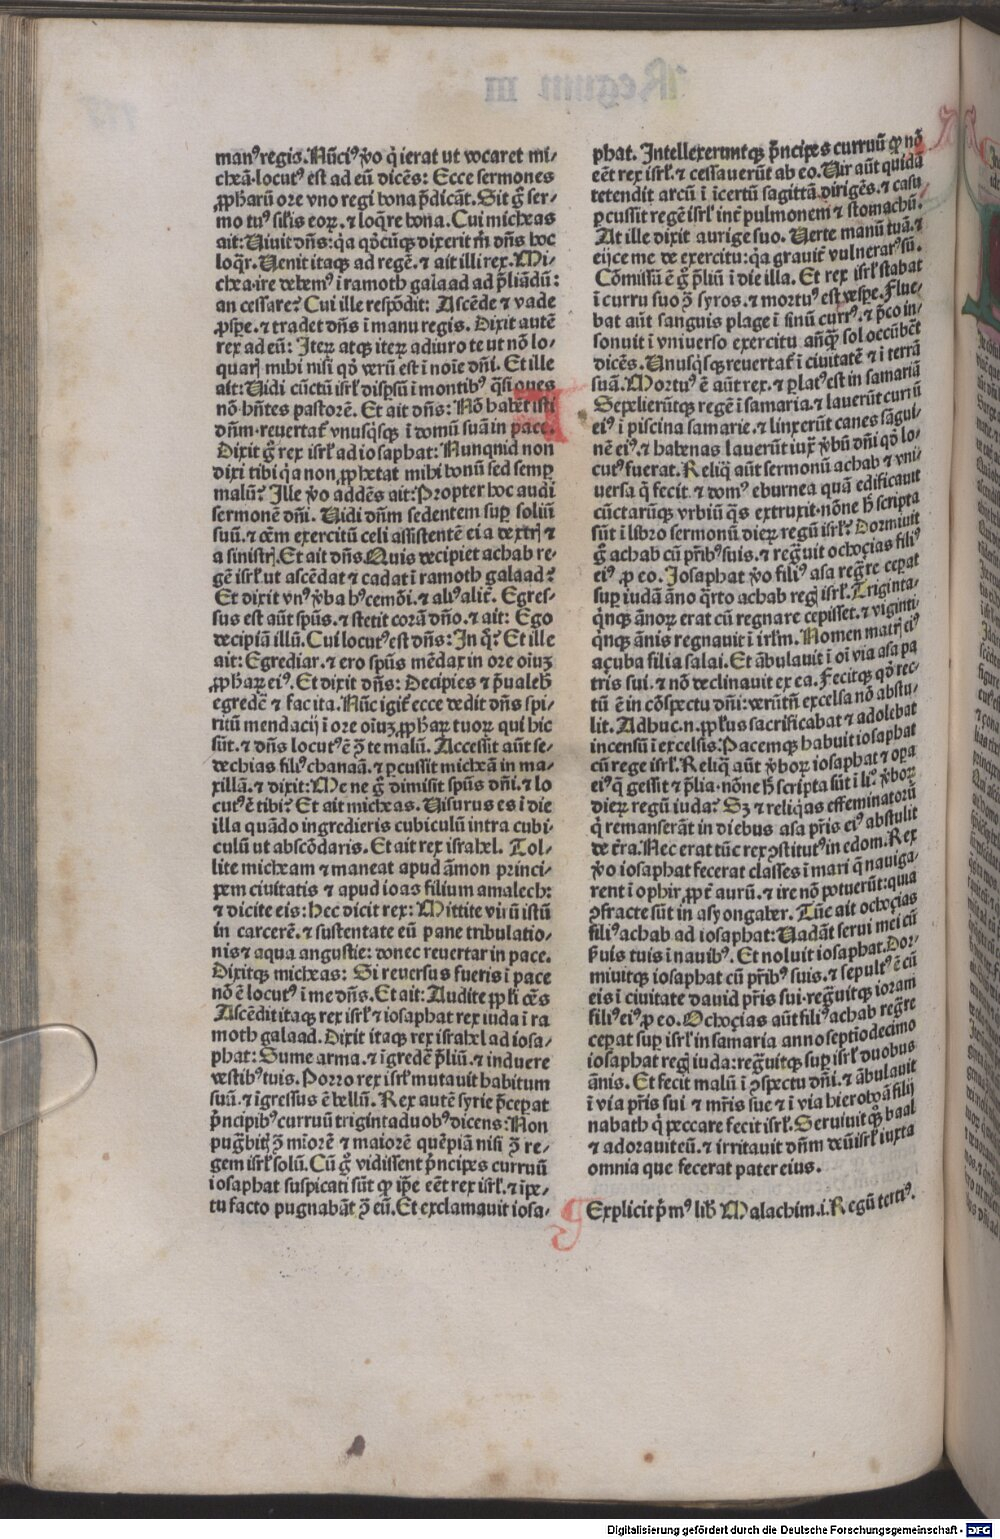 manꝰ regis. Nūciꝰ v̄o q̇ ierat ut vocaret mi⸗
cheā·locutꝰ est ad eū dicēs: Ecce sermones
ꝓphaꝝ ore vno regi bona p̄dicāt. Sit g̊ ser⸗
mo tuꝰ silis eoꝝ. ⁊ loq̄re bona. Cui micheas
ait: Viuit dn̄s: q̇a qd̓cūq; dixerit m̄ dn̄s hoc
loq̄r. Venit itaq; ad regē. ⁊ ait illi rex. Mi⸗
chea·ire debemꝰ ī ramoth galaad ad p̄liādū:
an cessare? Cui ille respōdit: Ascēde ⁊ vade
ꝓspe. ⁊ tradet dn̄s ī manu regis. Dixit autē
rex ad eū: Iteꝝ atq; iteꝝ adiuro te ut nō lo⸗
quarꝭ mihi nisi qd̓ verū est ī noīe dn̄i. Et ille
ait: Vidi cūctū isrl̓ disp̱sū ī montibꝰ q̄si oues
nō hn̄tes pastorē. Et ait dn̄s: Nō habēt isti
dn̄m·reuertat̄ vnusq̇sq; ī domū suā in pace.
Dixit g̊ rex isrl̓ ad iosaphat: Nunqnid non
dixi tibi q̇a non ꝓphetat mihi bonū sed semꝑ
malū? Ille v̄o addēs ait: Propter hoc audi
sermonē dn̄i. Vidi dn̄m sedentem suꝑ soliū
suū. ⁊ oēm exercitū celi assistentē ei a dextrꝭ ⁊
a sinistrꝭ. Et ait dn̄s. Quis decipiet achab re⸗
gē isrl̓ ut ascēdat ⁊ cadat ī ramoth galaad?
Et dixit vnꝰ v̄ba hꝰcemōi. ⁊ aliꝰ alit̄. Egres⸗
sus est aut̄ spūs. ⁊ stetit corā dn̄o. ⁊ ait: Ego
decipiā illū. Cui locutꝰ est dn̄s: In q̊? Et ille
ait: Egrediar. ⁊ ero spūs mēdax in ore oīuꝫ
ꝓphaꝝ eiꝰ. Et dixit dn̄s: Decipies ⁊ p̄ualeb̓
egredē ⁊ fac ita. Nūc igit̄ ecce dedit dn̄s spi⸗
ritū mendacij ī ore oīuꝫ ꝓphaꝝ tuoꝝ qui hic
sūt. ⁊ dn̄s locutꝰ ē ꝯ̄ te malū. Accessit aūt se⸗
dechias filiꝰ chanaā. ⁊ ꝑcussit micheā in ma⸗
xillā. ⁊ dixit: Me ne g̊ dimisit spūs dn̄i. ⁊ lo
cutꝰ ē tibi? Et ait micheas. Visurus es ī die
illa quādo ingredieris cubiculū intra cubi⸗
culū ut abscōdaris. Et ait rex israhel. Tol⸗
lite micheam ⁊ maneat apud āmon princi⸗
pem ciuitatis ⁊ apud ioas filium amalech:
⁊ dicite eis: hec dicit rex: Mittite virū istū
in carcerē. ⁊ sustentate eū pane tribulatio⸗
nis ⁊ aqua angustie: donec reuertar in pace.
Dixitq; micheas: Si reuersus fueris ī pace
nō ē locutꝰ ī me dn̄s. Et ait: Audite ꝓpl̓i oēs
Ascēdit itaq; rex isrl̓ ⁊ iosaphat rex iuda ī ra
moth galaad. Dixit itaq; rex israhel ad iosa⸗
phat: Sume arma. ⁊ īgredē p̄liū. ⁊ induere
vestibꝰ tuis. Porro rex isrl̓ mutauit habitum
suū. ⁊ īgressus ē bellū. Rex autē syrie p̄ceperat
p̄ncipibꝰ curruū triginta duobꝰ dicens: Non
pug̊bitꝭ ꝯ̄ mīorē ⁊ maiorē quēpiā nisi ꝯ̄ re⸗
gem isrl̓ solū. Cū g̊ vidissent p̄ncipes curruū
iosaphat suspicati sūt ꝙ ip̄e eēt rex isrl̓. ⁊ īpe⸗
tu facto pugnabāt ꝯ̄ eū. Et exclamauit iosa⸗
phat. Intellexeruntq; p̄ncipes curruū ꝙ nō
eēt rex isrl̓. ⁊ cessauerūt ab eo. Vir aūt quidā
tetendit arcū ī īcertū sagittā dirigēs. ⁊ casu
ꝑcussit regē isrl̓ int̄ pulmonem ⁊ stomachū.
At ille dixit aurige suo. Verte manū tuā. ⁊
eijce me de exercitu: q̇a grauit̄ vulneratꝰ sū.
Cōmissū ē g̊ p̄liū ī die illa. Et rex isrl̓ stabat
ī curru suo ꝯ̄ syros. ⁊ mortuꝰ est vesp̱e. Flue⸗
bat aūt sanguis plage ī sinū currꝰ. ⁊ p̄co in⸗
sonuit ī vniuerso exercitu añq̄ꝫ sol occūbēt
dicēs. Vnusq̇sq; reuertat̄ ī ciuitatē ⁊ ī terrā
suā. Mortuꝰ ē aūt rex. ⁊ ꝑlatꝰ est in samariā
Sepelierūtq; regē ī samaria. ⁊ lauerūt currū
eiꝰ ī piscina samarie. ⁊ linxerūt canes sāgui
nē eiꝰ. ⁊ habenas lauerūt iux̄ v̄bū dn̄i qd̓ lo⸗
cutꝰ fuerat. Reliq̄ aūt sermonū achab ⁊ vni⸗
uersa q̄ fecit. ⁊ domꝰ eburnea quā edificauit
cūctarūq; vrbiū q̄s extruxit·nōne h̄ scripta
sūt ī libro sermonū dieꝝ regū isrl̓? Dormiuit
g̊ achab cū pr̄ibꝰ suis. ⁊ reg̊uit ochoçias filiꝰ
eiꝰ ꝓ eo. Iosaphat v̄o filiꝰ asa reg̊re ceperat
suꝑ iudā āno q̊rto achab regꝭ isrl̓. Triginta⸗
q̇nq; ānoꝝ erat cū regnare cepisset. ⁊ viginti⸗
q̇nq; ānis regnauit ī irl̓m. Nomen matrꝭ eiꝰ
açuba filia salai. Et ābulauit ī oī via asa pa
tris sui. ⁊ nō declinauit ex ea. Fecitq; qd̓ rec⸗
tū ē in cōspectu dn̄i: verūtn̄ excelsa nō abstu⸗
lit. Adhuc.n. ꝓpl̓us sacrificabat ⁊ adolebat
incensū ī excelsis. Pacemq; habuit iosaphat
cū rege isrl̓. Reliq̄ aūt v̄boꝝ iosaphat ⁊ opera
eiꝰ q̄ gessit ⁊ p̄lia·nōne h̄ scripta sūt ī li? v̄boꝝ
dieꝝ regū iuda? Sꝫ ⁊ reliq̇as effeminatorū
q̇ remanserāt in diebus asa pr̄is eiꝰ abstulit
de t̄ra. Nec erat tūc rex ꝯstitutꝰ in edom. Rex
v̄o iosaphat fecerat classes ī mari q̄ nauiga⸗
rent ī ophir ꝓpt̄ aurū. ⁊ ire nō potuerūt: quia
ꝯfracte sūt in asyongaber. Tūc ait ochoçias
filiꝰ achab ad iosaphat: Vadāt serui mei cū
s̓uis tuis ī nauibꝰ. Et noluit iosaphat. Dor⸗
miuitq; iosaphat cū pr̄ibꝰ suis. ⁊ sepultꝰ ē cū
eis ī ciuitate dauid pr̄is sui·reg̊uitq; ioram
filiꝰ eiꝰ ꝓ eo. Ochoçias aūt filiꝰ achab reg̊re
ceperat suꝑ isrl̓ in samaria anno septīodecimo
iosaphat regꝭ iuda: reg̊uitq; suꝑ isrl̓ duobus
ānis. Et fecit malū ī ꝯspectu dn̄i. ⁊ ābulauit
ī via pr̄is sui ⁊ mr̄is sue ⁊ ī via hieroboā filij
nabath q̇ peccare fecit isrl̓. Seruiuit q̊ꝫ baal
⁊ adorauit eū. ⁊ irritauit dn̄m deū isrl̓ iuxta
omnia que fecerat pater eius.
Explicit p̄mꝰ lib̓ Malachim.i. Regū tertiꝰ.
Digitalisierung gefördert durch die Deutsche Forschungsgemeinschaft - DFG